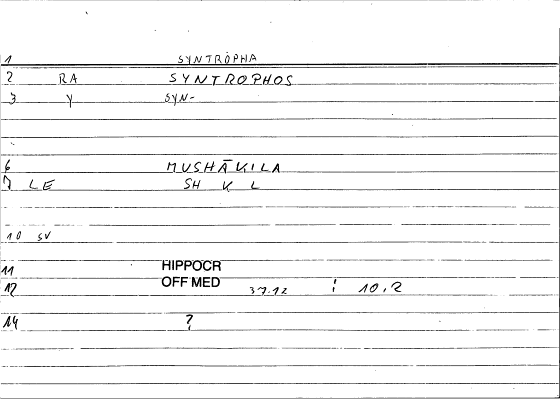 1 SYNTROPHA
2 RA SYNTROPHOS
3 Y SYN-
6 MUSHĀKILA
7 LE SH K L
10 SV
11 HIPPOCR
12 OFF MED 37.12 : 10,2
14 ?